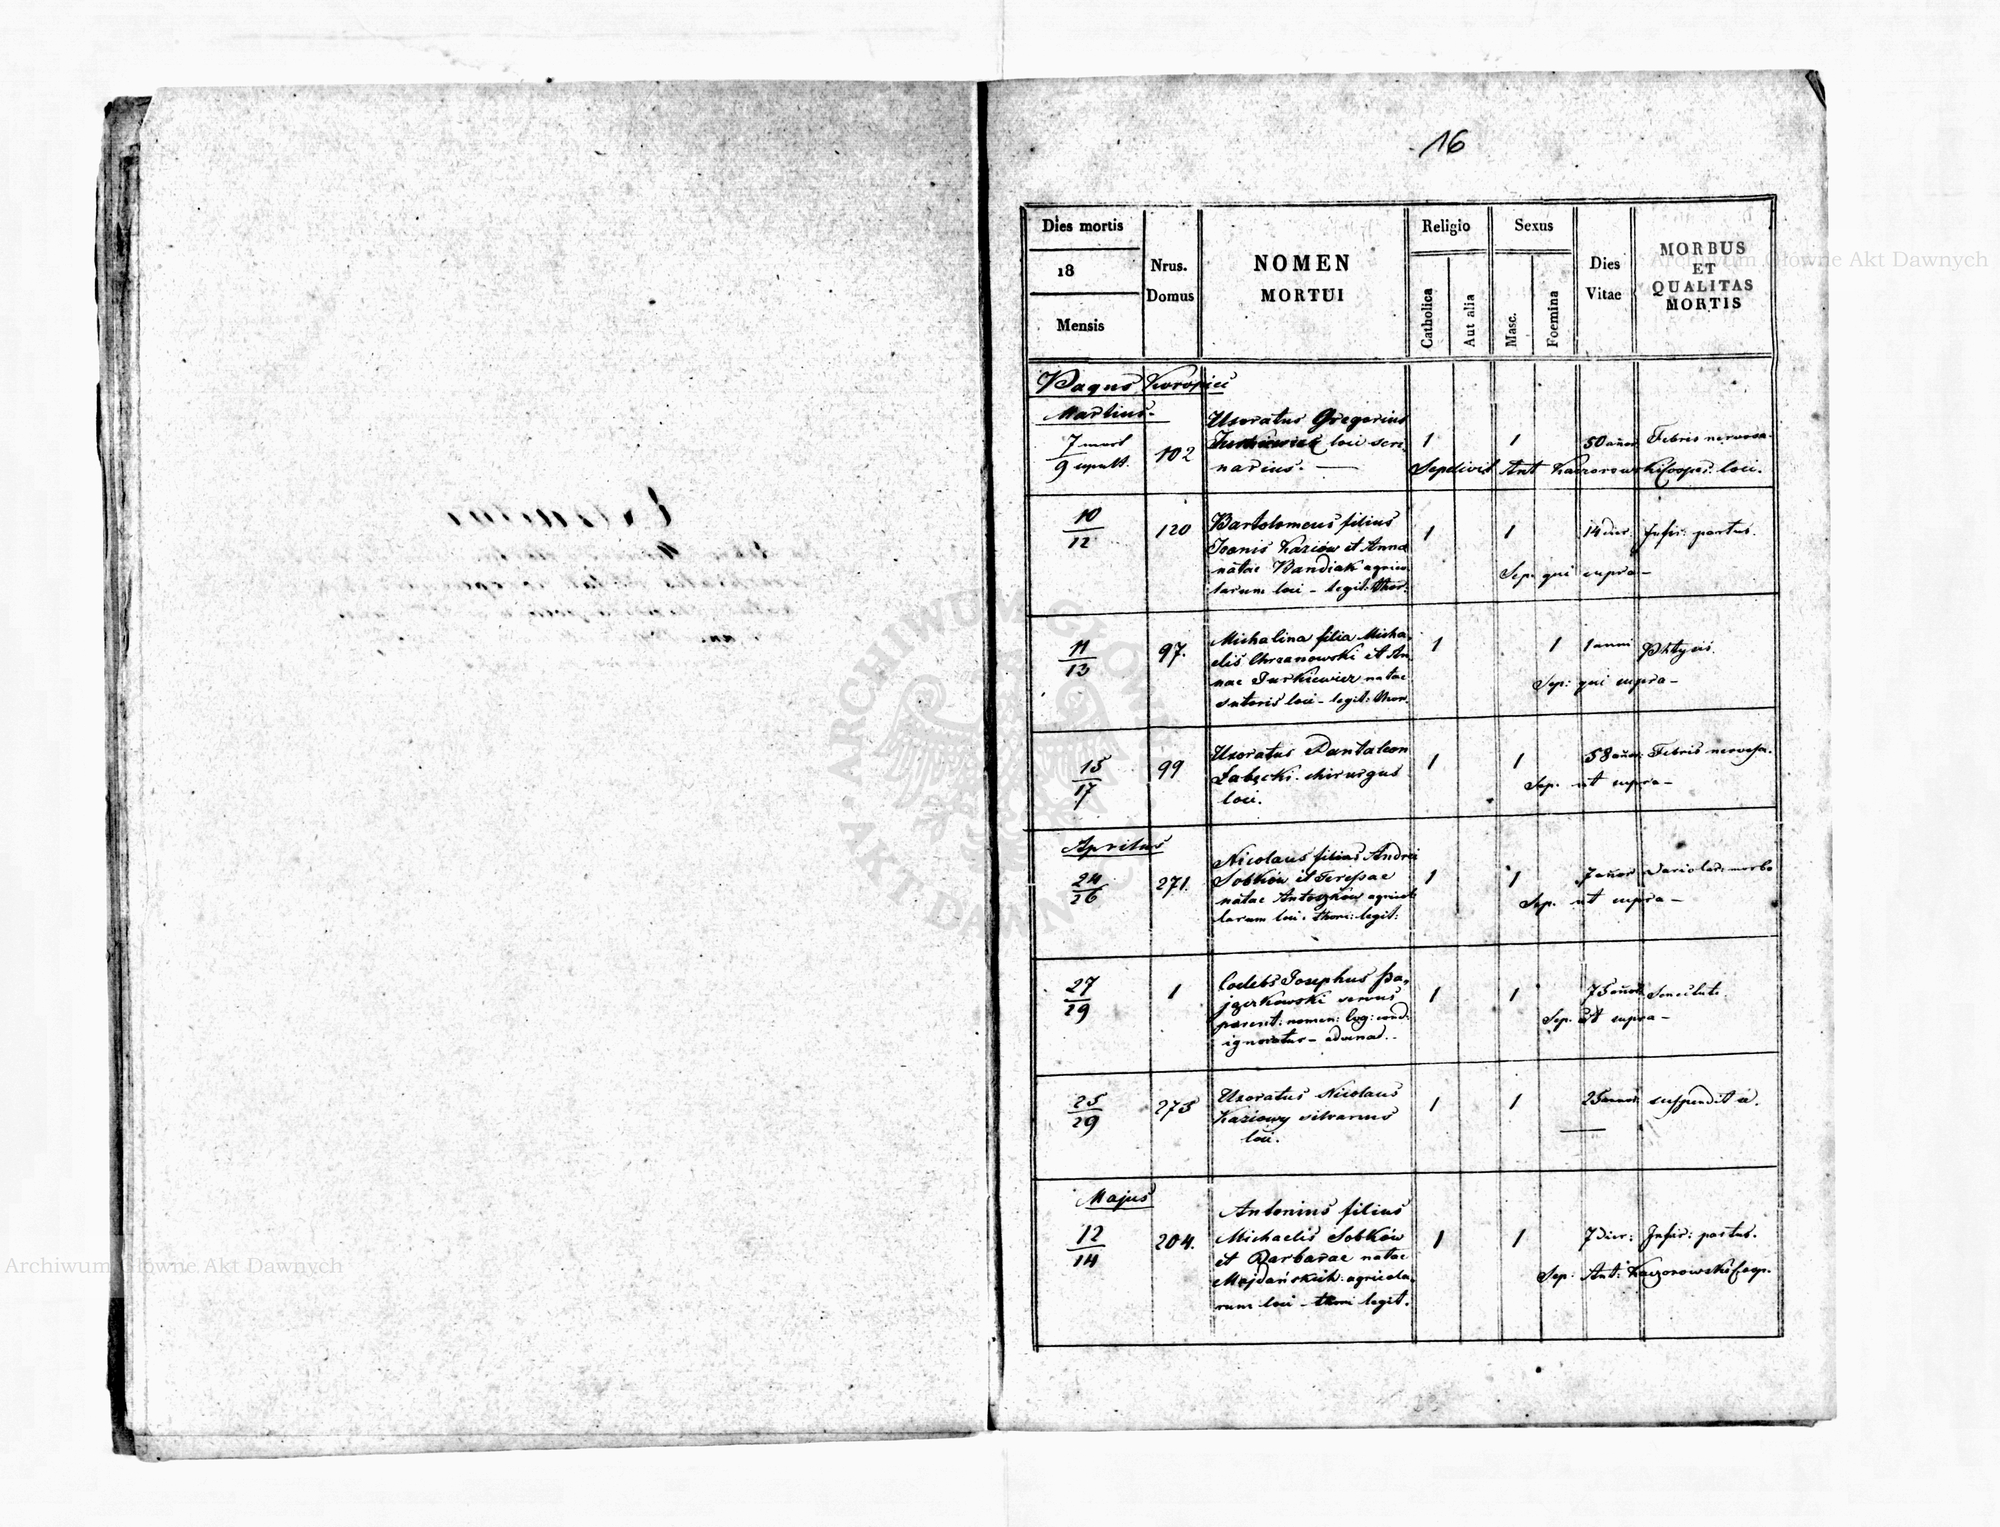 16
Dies mortis
18
Mensis
Nrus.
Domus
NOMEN
MORTUI
Religio
Catholica
Aut alia
Sexus
Masc.
Foemina
Dies
Vitae
MORBUS
ET
QUALITAS
MORTIS
Pagus Koropiec
Martius
7 mort
9 sepult.
102
Uxoratus Gregorius
loci scri-
narius.
1
1
50 annor
Febris nervosa
Sepelivit Ant Kaczorowski Cooper. loci.
10
12
120
Bartolomeus filius
Joanis Kaziów et Anna
natae Bandiak agrico
larum loci - legit: thor:
1
1
14 dier
Infir: partus.
Sep. qui supra -
11
13
97.
Michalina filia Micha-
elis Chrzanowski et An
nae Jurkiewicz natae
sutoris loci - legit: thor.
1
1
1 anni
Phtysis.
Sep: qui supra -
15
17
99
Uxoratus Pantaleon
Łabęcki chirurgus
loci.
1
1
58 annor:
Febris nervosa.
Sep. ut supra -
Aprilus
24
26
271.
Nicolaus filius Andrei
Sobków et Teressae
natae Antoszków agricol
larum loci. thori: legit:
1
1
7 annor
Variolar: morbo
Sep. ut supra -
27
29
1
Coelebs Josephus Pa-
jączkowski servus
parent: nomen: cond:
ignoratur - advenad..
1
1
75 annor
Senectute.
Sep. ut supra -
25
29
275
Uxoratus Nicolaus
Kaziowy silvanus
loci.
1
1
25 annor
suspendit se.
Majus
12
14
204.
Antonius filius
Michaelis Sobków
et Barbarae natae
Majdańskich agricola-
rum loci - thori legit.
1
1
7 dier:
Infir: partus.
Sep: Ant: Kaczorowski Coop.
Archiwum Główne Akt Dawnych
ARCHIWUM GŁÓWNE
AKT DAWNYCH
Archiwum Główne Akt Dawnych